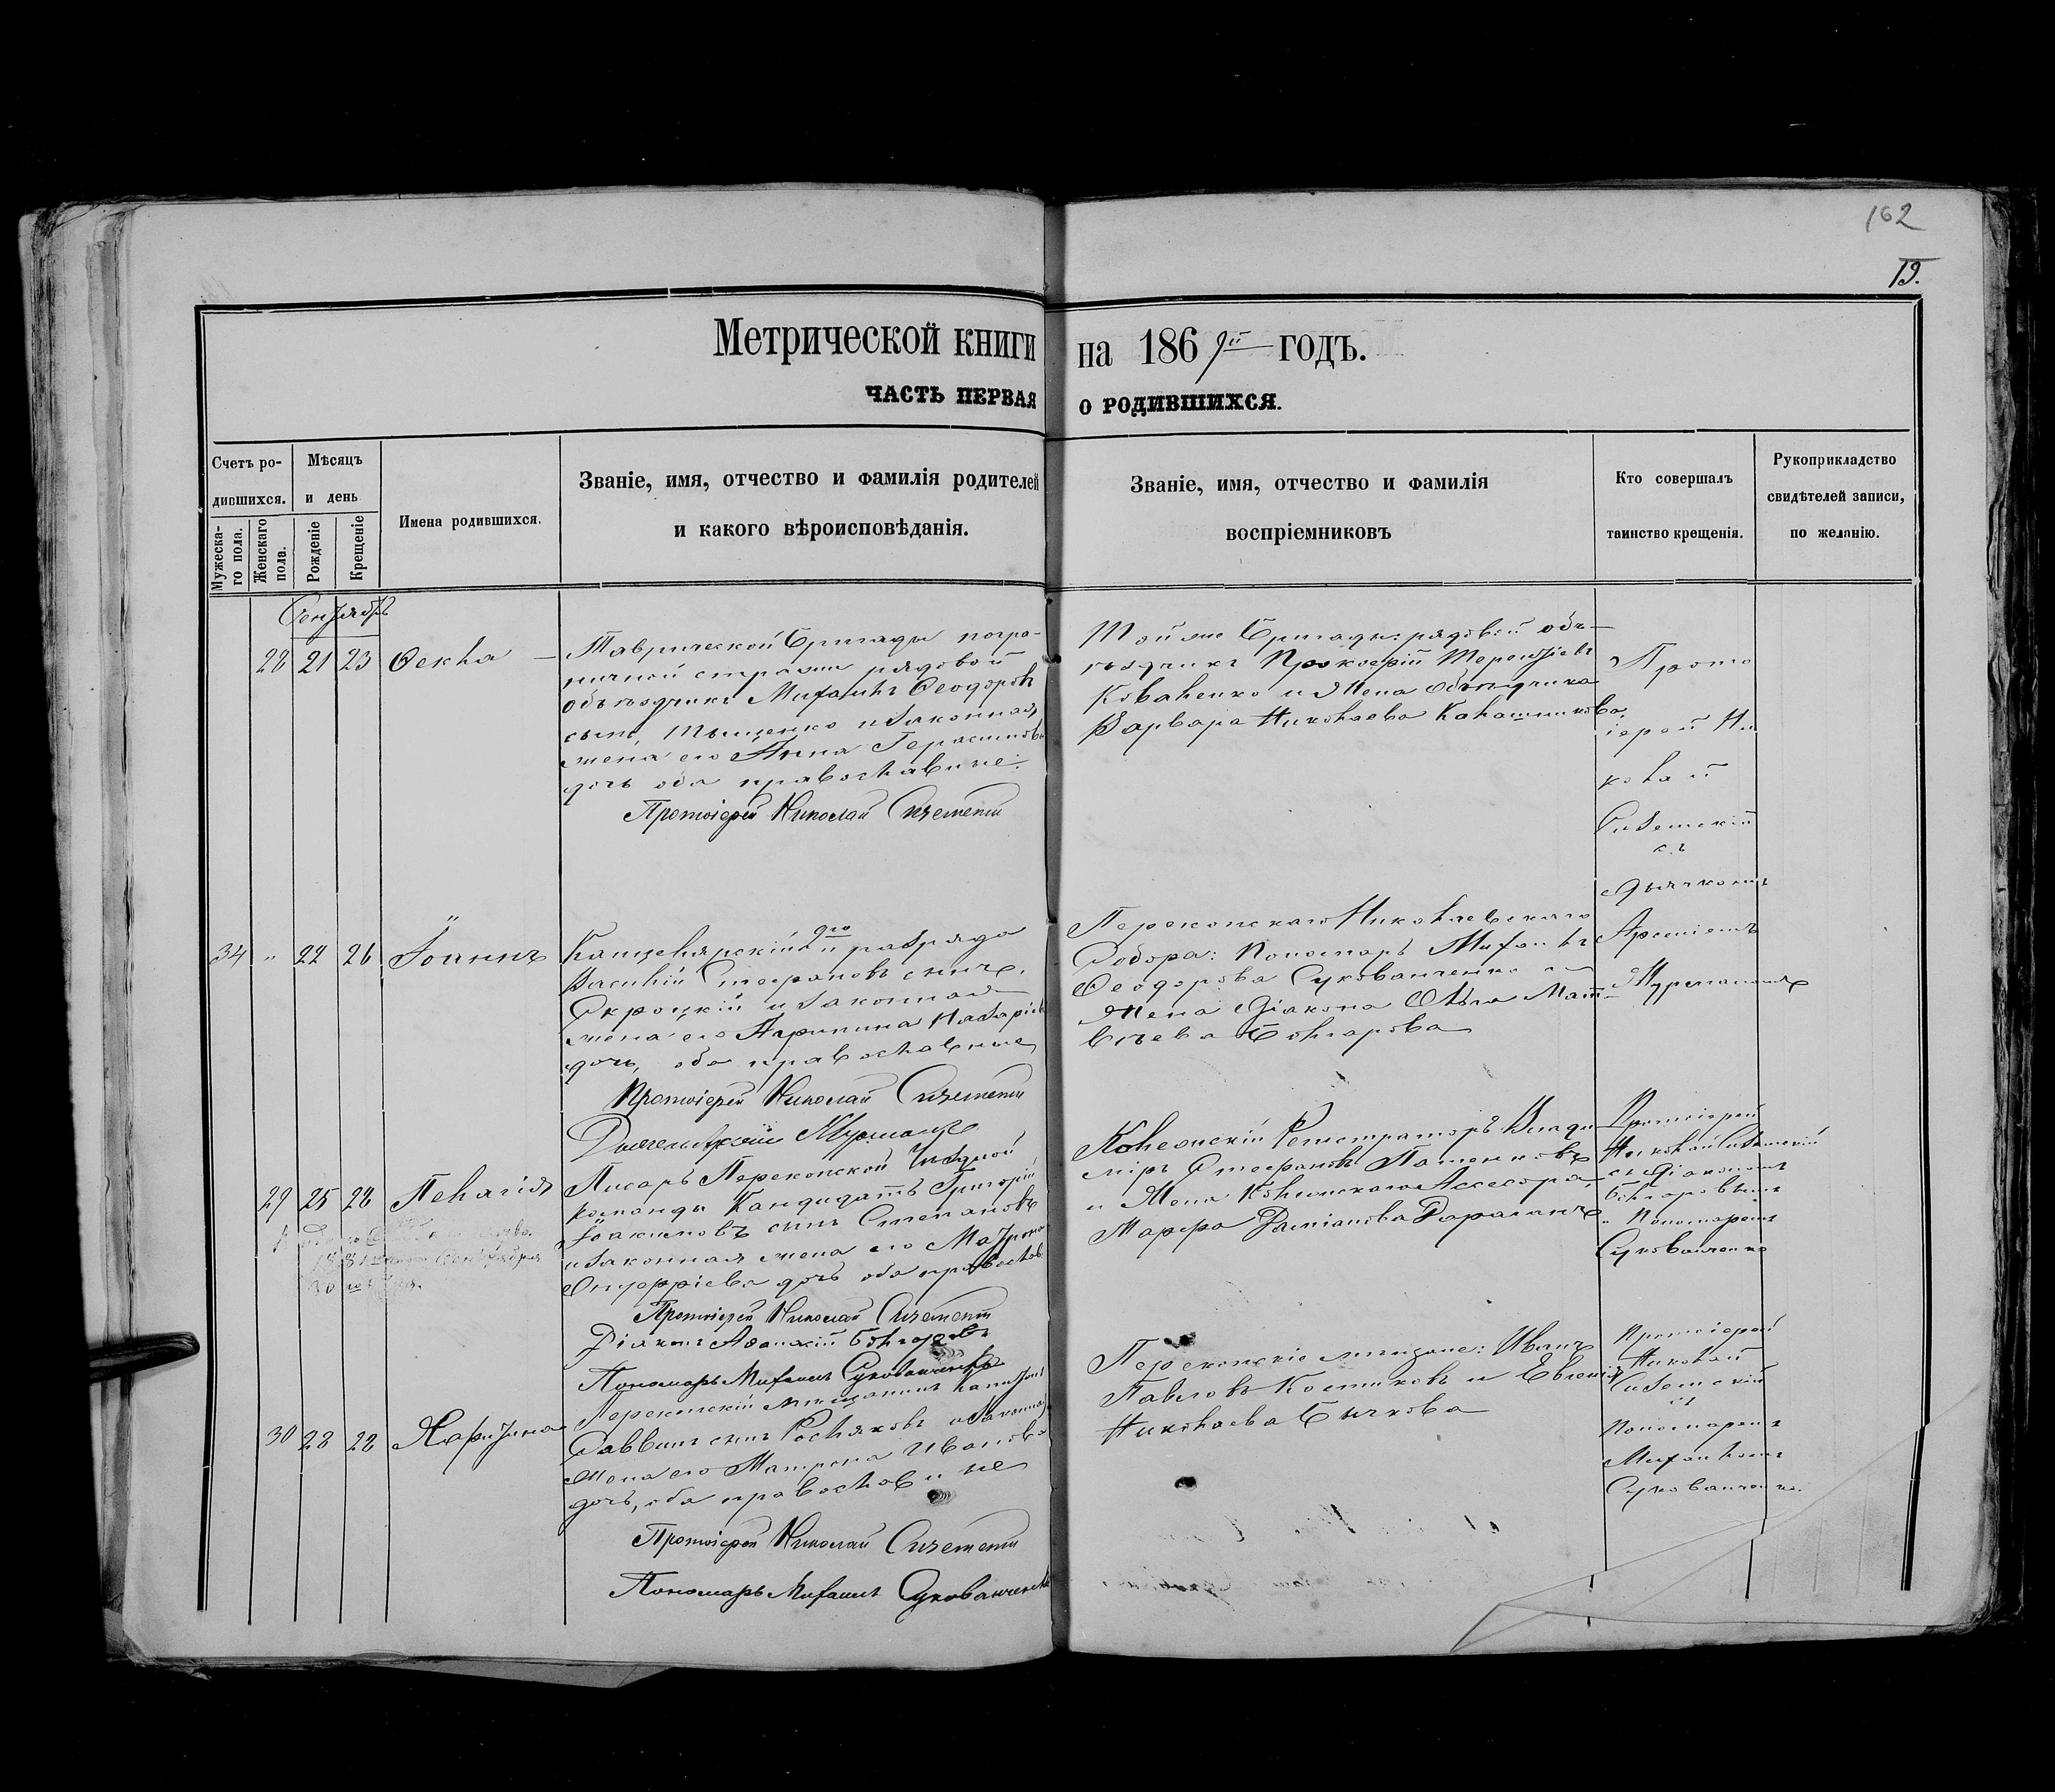 162
19.
Метрической книги на 1869й годъ.
часть первая о родившихся.
Счетъ ро-
дившихся.
Мужеска-
го пола.
Женскаго
пола.
Мѣсяцъ
и день
Рожденіе
Крещеніе
Имена родившихся.
Званіе, имя, отчество и фамилія родителей
и какого вѣроисповѣданія.
Званіе, имя, отчество и фамилія
воспріемниковъ
Кто совершалъ
таинство крещенія.
Рукоприкладство
свидѣтелей записи,
по желанію.
Сентябрь
28 21 23 Ѳекла
Таврической Бригады погра-
ничной стражи рядовой
объѣздчикъ Михаилъ Ѳеодоровъ
сынъ, Тыщенко и законная
жена его Анна Герасимова
дочь оба православные.
Протоіерей Николай
Той же Бригады: рядовой объ-
ѣздчикъ Прокофій Терентіевъ
Коваленко и жена объѣздчика
Варвара Николаева Калашникова
Прото
іерей Ни
колай
съ
Дьячкомъ
Арсеніемъ
34 " 22 26 Іоаннъ
Канцелярскій 2го разряда
Василій Стефановъ сынъ
Скроцкій и законная
жена его Агрипина Назаріева
дочь, оба православные
Протоіерей Николай
Перекопскаго Николаевскаго
Собора: Пономарь Михаилъ
Ѳеодоровъ Суковаиченко и
Жена Діакона Ольга Мат-
вѣева Болгарова
29 25 28 Пелагія
Писарь Перекопской Уѣздной
команды Кандидатъ Григорій
Іоакимовъ сынъ Степановъ
и законная жена его Матрона
Онуфріева дочь оба православ.
Протоіерей Николай
Діаконъ Аѳанасій Болгаровъ
Пономарь Михаилъ Суковаиченко
Колежскій Регистраторъ Влади-
міръ Стефановъ Патенковъ
и Жена Колежскаго Ассесора
Марфа Даміанова Дараганъ
Протоіерей
Николай
съ Діакономъ
Болгаровымъ
и Пономаремъ
Суковаиченко
30 28 28 Харитина
Перекопскій мѣщанинъ Капитонъ
Саввинъ сынъ Росляковъ и законная
жена его Матрона Иванова
дочь, оба православные
Протоіерей Николай
Пономарь Михаилъ Суковаиченко
Перекопскіе мѣщане: Иванъ
Павловъ Костиковъ и Евгенія
Николаева Бычкова
Протоіерей
Николай
съ
Пономаремъ
Михаиломъ
Суковаиченко.